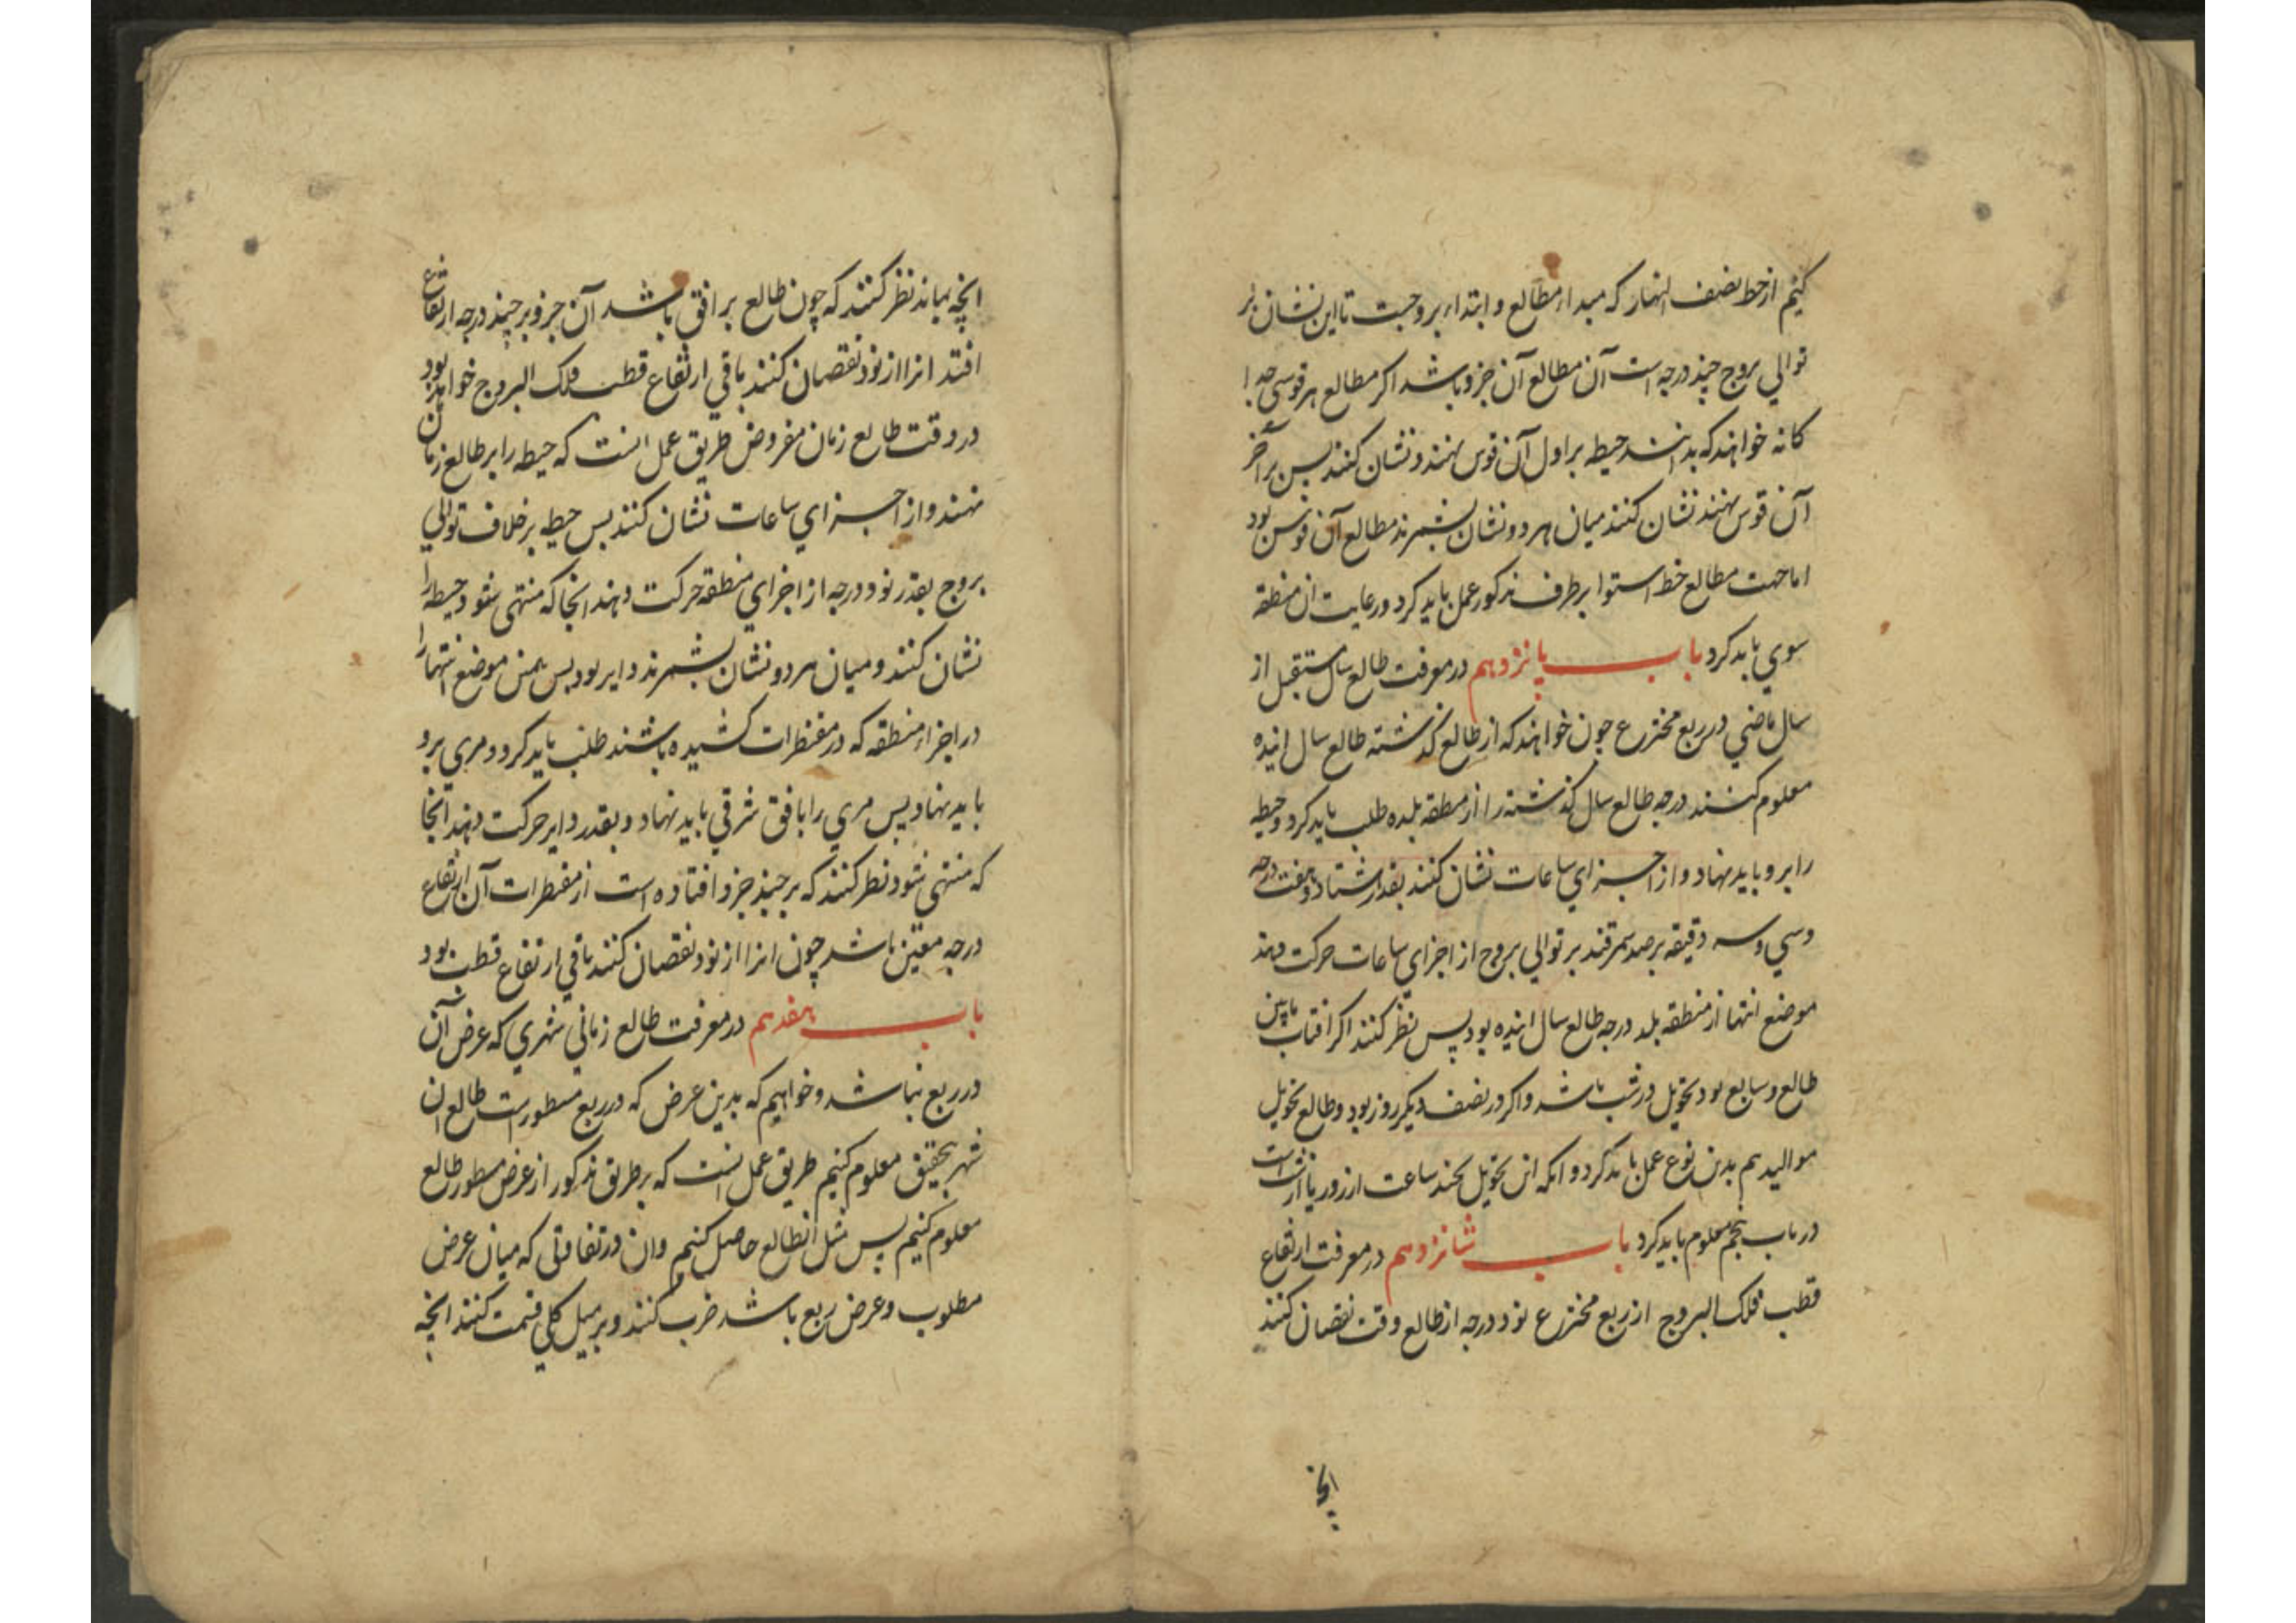 کنیم از خط نصف النهار که مبداء مطالع و ابتداء بروجست تا این نشان بر
توالي بروج چند درجه است آن مطالع آن جزو باشد اکر مطالع هر قوسی جدا
کانه خواهند که بدانند حیطه بر اول آن قوس نهند و نشان کنند پس بر آخر
آن قوس نهند نشان کنند میان هر دو نشان بشمرند مطالع آن قوس بود
اما جهت مطالع خط استوا بر طرف مذکور عمل باید کرد و رعایت ان منطقه
سوي باید کرد باب پانزدهم در معرفت طالع سال مستقبل از
سال ماضي در ربع مخترع چون خواهند که از طالع کذشته طالع سال اینده
معلوم کنند درجه طالع سال کذشته را از منطقه بلده طلب باید کرد و حیطه
را برو باید نهاد و از اجزاي ساعات نشان کنند بقدر هشتاد و هفت درجه
و سي و سه دقیقه برصد سمرقند بر توالي بروج از اجزاي ساعات حرکت دهند
موضع انتها از منطقه بلد درجه طالع سال اینده بود پس نظر کنند اکر افتاب مابین
طالع و سابع بود تحویل در شب باشد و اکر در نصف دیکر روز بود و طالع تحویل
موالید هم بدین نوع عمل باید کرد و انکه این تحویل بچند ساعت از روز یا از شب است
در باب پنجم معلوم باید کرد باب شانزدهم در معرفت ارتفاع
قطب فلک البروج از ربع مخترع نود درجه از طالع وقت نقصان کنند
انچه
انچه بماند نظر کنند که چون طالع بر افق باشد آن جزو بر چند درجه ارتفاع
افتد انرا از نود نقصان کنند باقي ارتفاع قطب فلک البروج خواهد بود
در وقت طالع زمان مفروض طریق عمل انست که حیطه را بر طالع زمان
نهند و از اجزاي ساعات نشان کنند پس حیطه بر خلاف توالي
بروج بقدر نود درجه از اجزاي منطقه حرکت دهند انجا که منتهی شود حیطه را
نشان کنند و میان هر دو نشان بشمرند دایر بود پس همن موضع انتها را
در اجزاء منطقه که در مقنطرات کشیده باشند طلب باید کرد و مري برو
باید نهاد پس مري را بافق شرقي باید نهاد و بقدر دایر حرکت دهند انجا
که منتهی شود نظر کنند که بر چند جزو افتاده است از مقنطرات آن ارتفاع
درجه معین باشد چون انرا از نود نقصان کنند باقي ارتفاع قطب بود
باب هفدهم در معرفت طالع زماني شهري که عرض آن
در ربع نباشد و خواهیم که بدین عرض که در ربع مسطور است طالع ان
شهر بتحقیق معلوم کنیم طریق عمل انست که بر طریق مذکور از عرض مسطور طالع
معلوم کنیم پس مثل انطالع حاصل کنیم وان در تفاوتی که میان عرض
مطلوب و عرض ربع باشد ضرب کنند و بر میل کلي قسمت کنند انچه